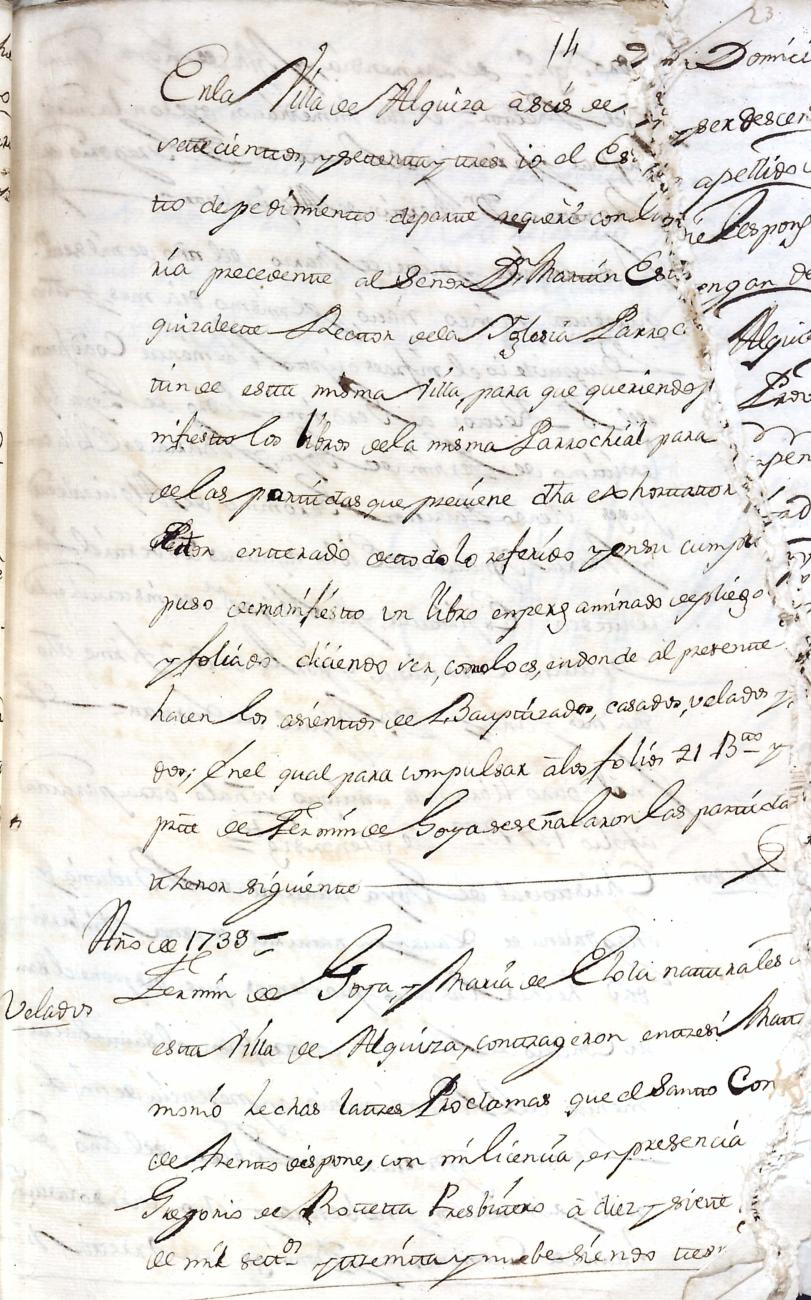 23
14
En la Villa de Alquiza a seis de
setecientos, y settenta y tres io el Es
tto de pedimientto de parte requerì con la
ria precedente al Señor Dn Marttin Est
quizalette Rector de la Yglesia Parroc
tin de estta misma Villa, para que queriendo
nifiestto los libros de la misma Parrochial para
de las parttidas que previene dha exhorttattor
Rettor entterado de ttodo lo referido y en su cumpli
puso de manifiestto un libro enpergaminado de pliego
y foliado diciendo ser, como lo es, en donde al presentte
hacen los asienttos de Bauptizados, casados, velados y
dos; en el qual para compulsar à los folios 21 Btto y
prte de Fermin de Goya se señalaron las parttida
thenor siguientte
Año de 1739
Velados
Fermin de Goya y Maria de Elola natturales
estta Villa de Alquiza, contrageron entresi Matt
monio hechas las tres Proclamas que el Santto Con
de trentto dispone, con mi licencia, en presencia
Gregorio de Rotetta Presbittero à diez y siette
de mil settos y ttreintta y nuebe siendo ttes
Domici
y ser descen
apellido
respons
engan de
Alquiz
Prov
pen